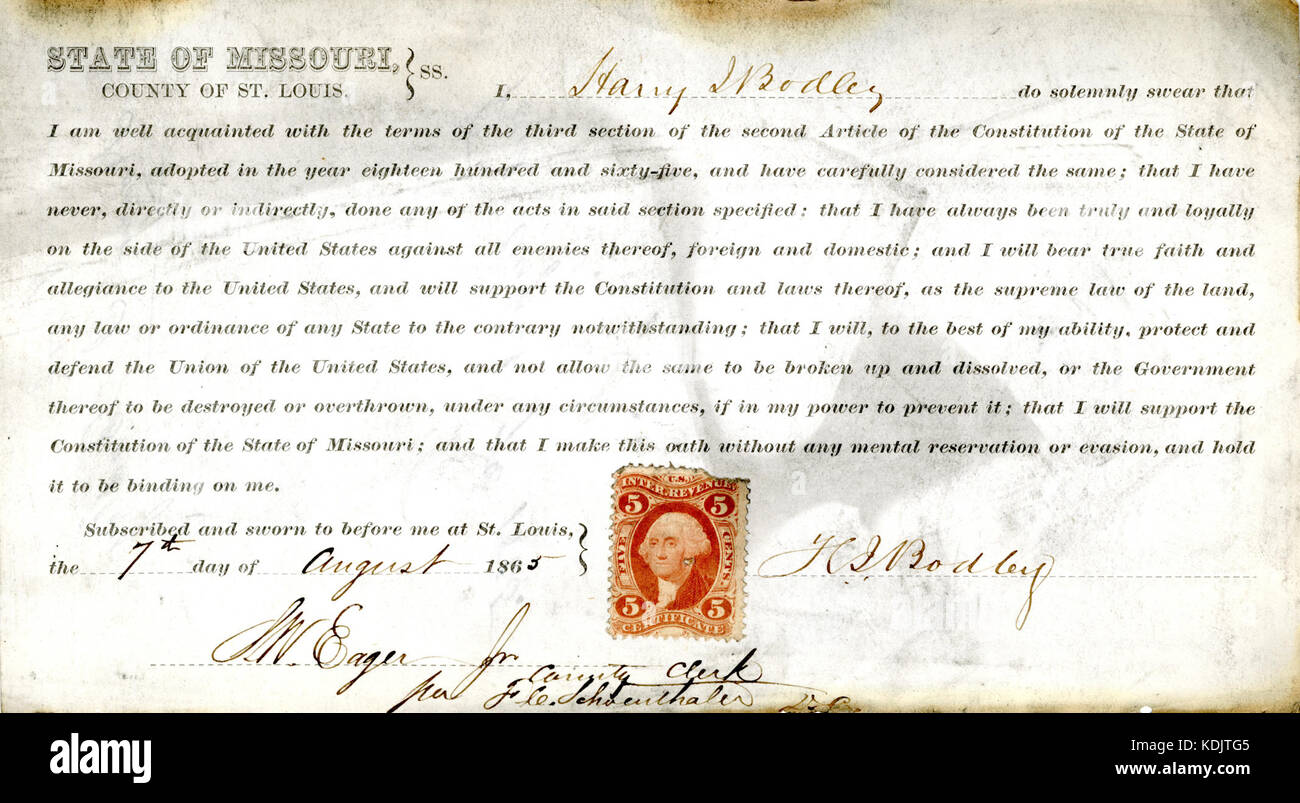 STATE OF MISSOURI, } SS.
COUNTY OF ST. LOUIS.
I, Harry I Bodley do solemnly swear that
I am well acquainted with the terms of the third section of the second Article of the Constitution of the State of
Missouri, adopted in the year eighteen hundred and sixty-five, and have carefully considered the same; that I have
never, directly or indirectly, done any of the acts in said section specified: that I have always been truly and loyally
on the side of the United States against all enemies thereof, foreign and domestic; and I will bear true faith and
allegiance to the United States, and will support the Constitution and laws thereof, as the supreme law of the land,
any law or ordinance of any State to the contrary notwithstanding; that I will, to the best of my ability, protect and
defend the Union of the United States, and not allow the same to be broken up and dissolved, or the Government
thereof to be destroyed or overthrown, under any circumstances, if in my power to prevent it; that I will support the
Constitution of the State of Missouri; and that I make this oath without any mental reservation or evasion, and hold
it to be binding on me.
Subscribed and sworn to before me at St. Louis,
the 7th day of August 1865 }
U.S.
INTER. REVENUE
5 5
FIVE CENTS.
5 5
CERTIFICATE
H I Bodley
S.W. Eager Jr
County Clerk
per F C. Schoenthaler
alamy
Image ID: KDJTG5
www.alamy.com